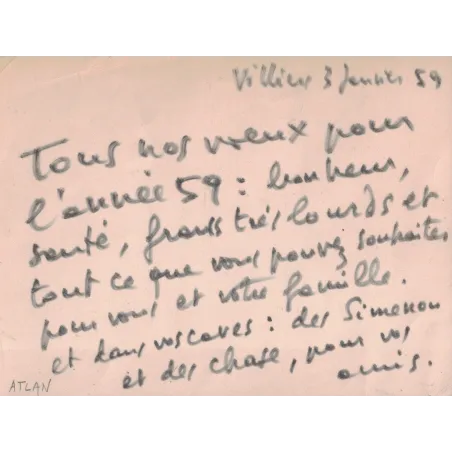 Villiers 3 Janvier 59
Tous nos vœux pour
l'année 59 : bonheur,
santé, francs très lourds et
tout ce que vous pouvez souhaiter
pour vous et votre famille.
et dans vos caves : des Simenon
et des chase, pour vos
amis.
ATLAN